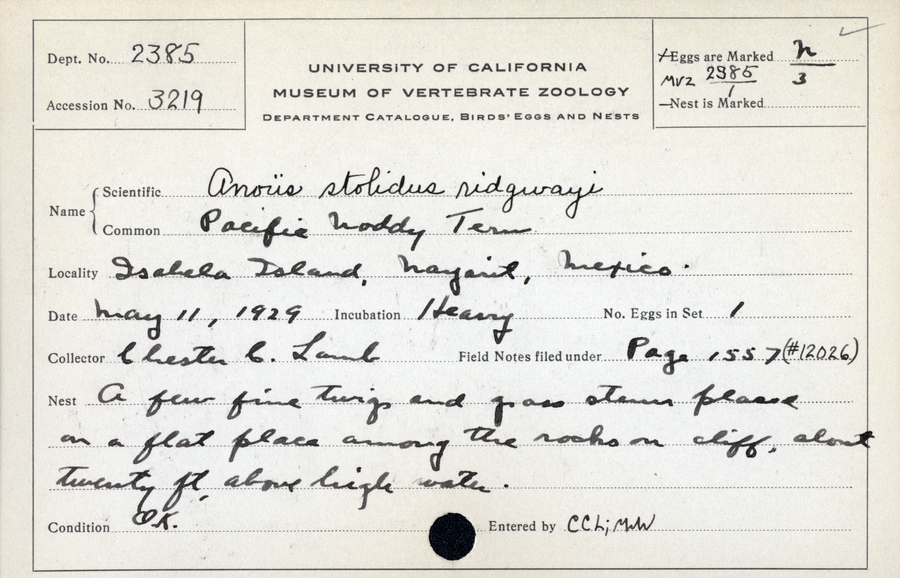 Dept. No. 2385
Accession No. 3219
UNIVERSITY OF CALIFORNIA
MUSEUM OF VERTEBRATE ZOOLOGY
DEPARTMENT CATALOGUE, BIRDS' EGGS AND NESTS
Eggs are Marked n/3
MVZ 2385/1
Nest is Marked
Name
Scientific Anoüs stolidus ridgwayi
Common Pacific Noddy Tern
Locality Isabela Island, Nayarit, Mexico.
Date May 11, 1929 Incubation Heavy No. Eggs in Set 1
Collector Chester C. Lamb Field Notes filed under Page 1557 (#12026)
Nest A few fine twigs and grass stems placed
on a flat place among the rocks on cliff, about
twenty ft, above high water.
Condition O.K. Entered by CCL; MW